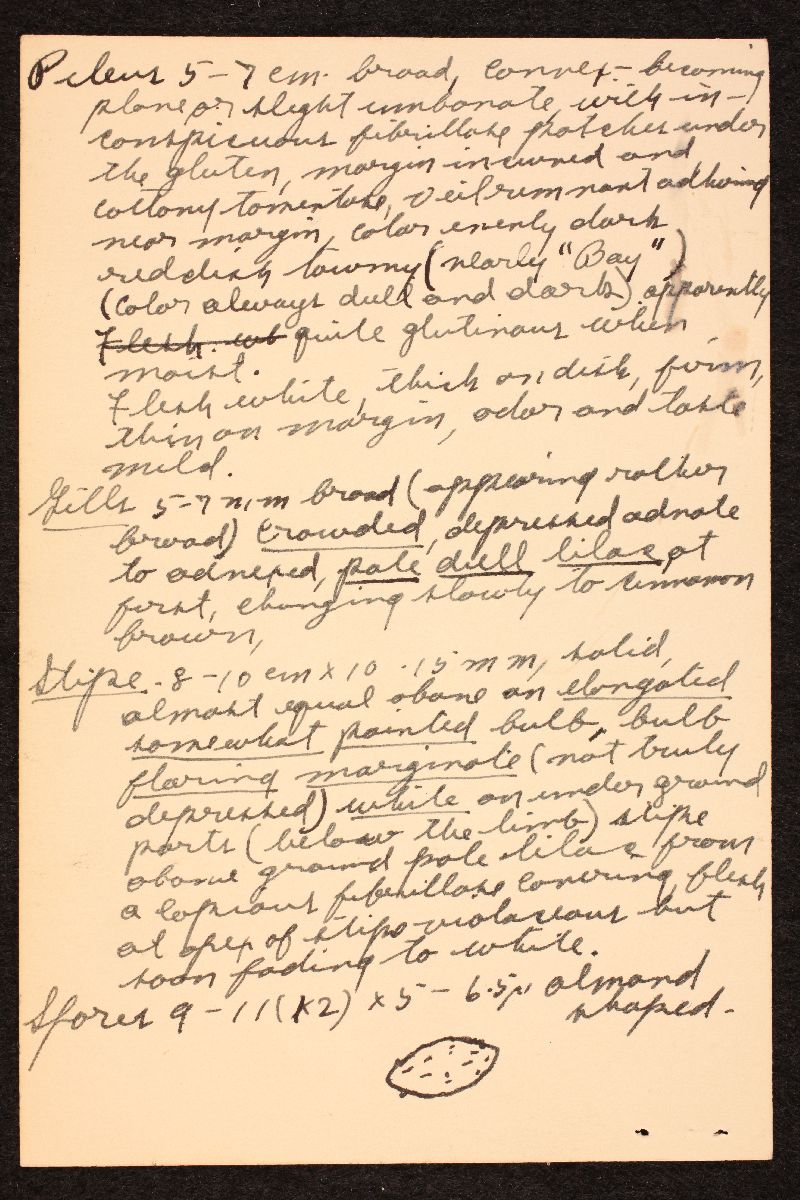 Pileus 5-7 cm. broad, convex- becoming
plane or slight umbonate, with in-
conspicuous fibrillose patches under
the gluten, margin incurved and
cottony tomentose, veil remnant adhering
near margin, color evenly dark
reddish tawny (nearly "Bay")
(color always dull and dark) apparently
Flesh. wh quite glutinous when
moist.
Flesh white, thick on disk, firm,
thin on margin, odor and taste
mild.
Gills 5-7 mm broad (appearing rather
broad) crowded, depressed adnate
to adnexed, pale dull lilac at
first, changing slowly to cinnamon
brown,
Stipe. 8-10 cm x 10-15 mm, solid,
almost equal above an elongated
somewhat pointed bulb, bulb
flaring marginate (not truly
depressed) white on under ground
parts (below the limb) stipe
above ground pale lilac from
a copious fibrillose covering, flesh
at apex of stipe violaceous but
soon fading to white.
Spores 9-11(12) x 5-6.5µ almond
shaped.